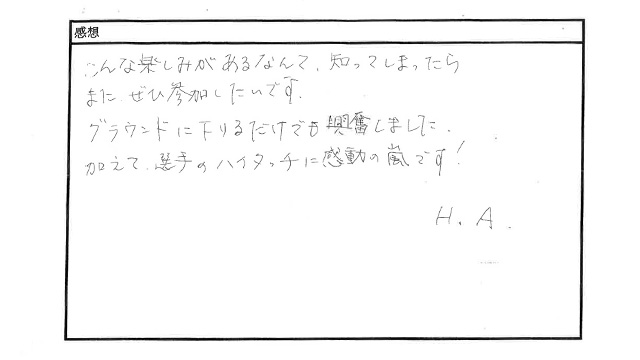 感想
こんな楽しみがあるなんて、知ってしまったら
また ぜひ参加したいです.
グラウンドに下りるだけでも興奮しました.
加えて、選手のハイタッチに感動の嵐です!
H. A.